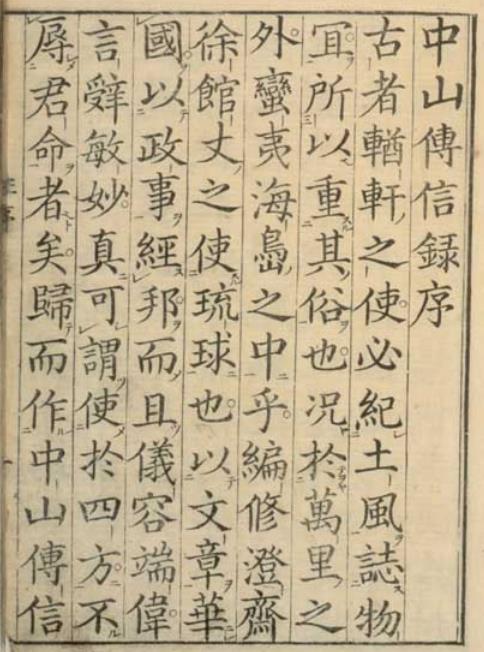 中山傳信録序
古者輶軒之使必紀土風誌物
冝所以重其俗也况於萬里之
外蠻夷海嶋之中乎編修澄齋
徐館丈之使琉球也以文章華
國以政事經邦而且儀容端偉
言辤敏妙真可謂使於四方不
辱君命者矣歸而作中山傳信